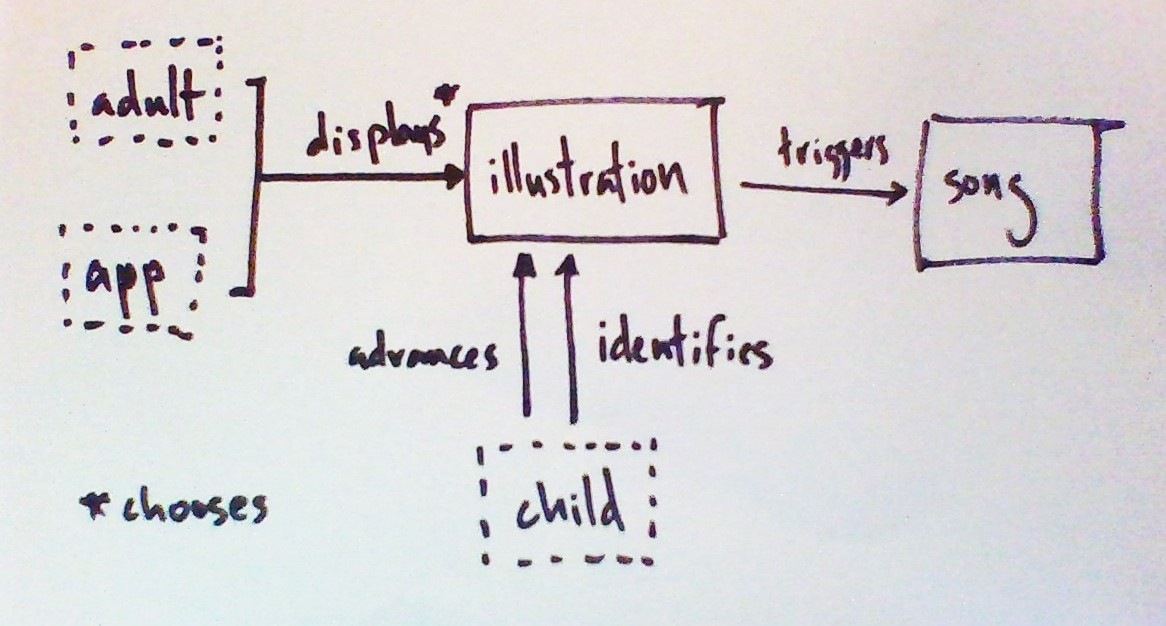 adult
displays*
illustration
triggers
song
app
advances
identifies
child
*chooses